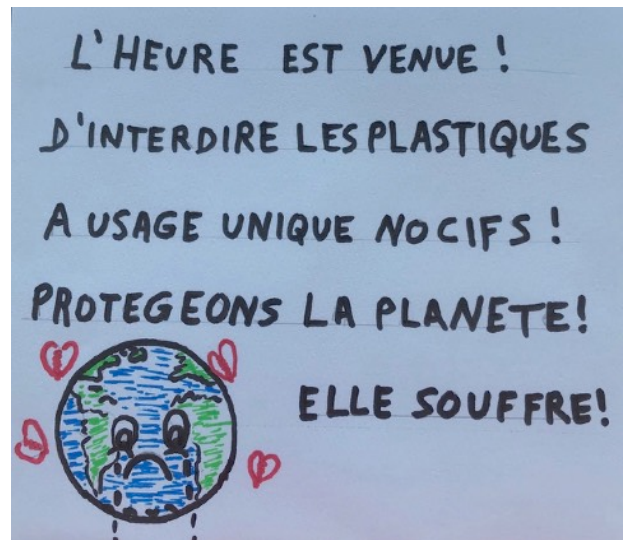 L'HEURE EST VENUE !
D'INTERDIRE LES PLASTIQUES
A USAGE UNIQUE NOCIFS !
PROTEGEONS LA PLANETE!
ELLE SOUFFRE!